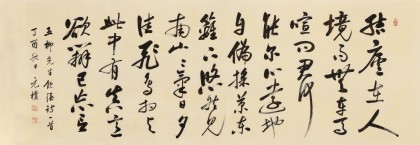 結廬在人
境而無車馬
喧問君何
能尔心遠地
自偏採菊東
籬下悠然見
南山山氣日夕
佳飛鳥相与還
此中有真意
欲辨已忘言
五柳先生飲酒詩一首
丁酉秋日